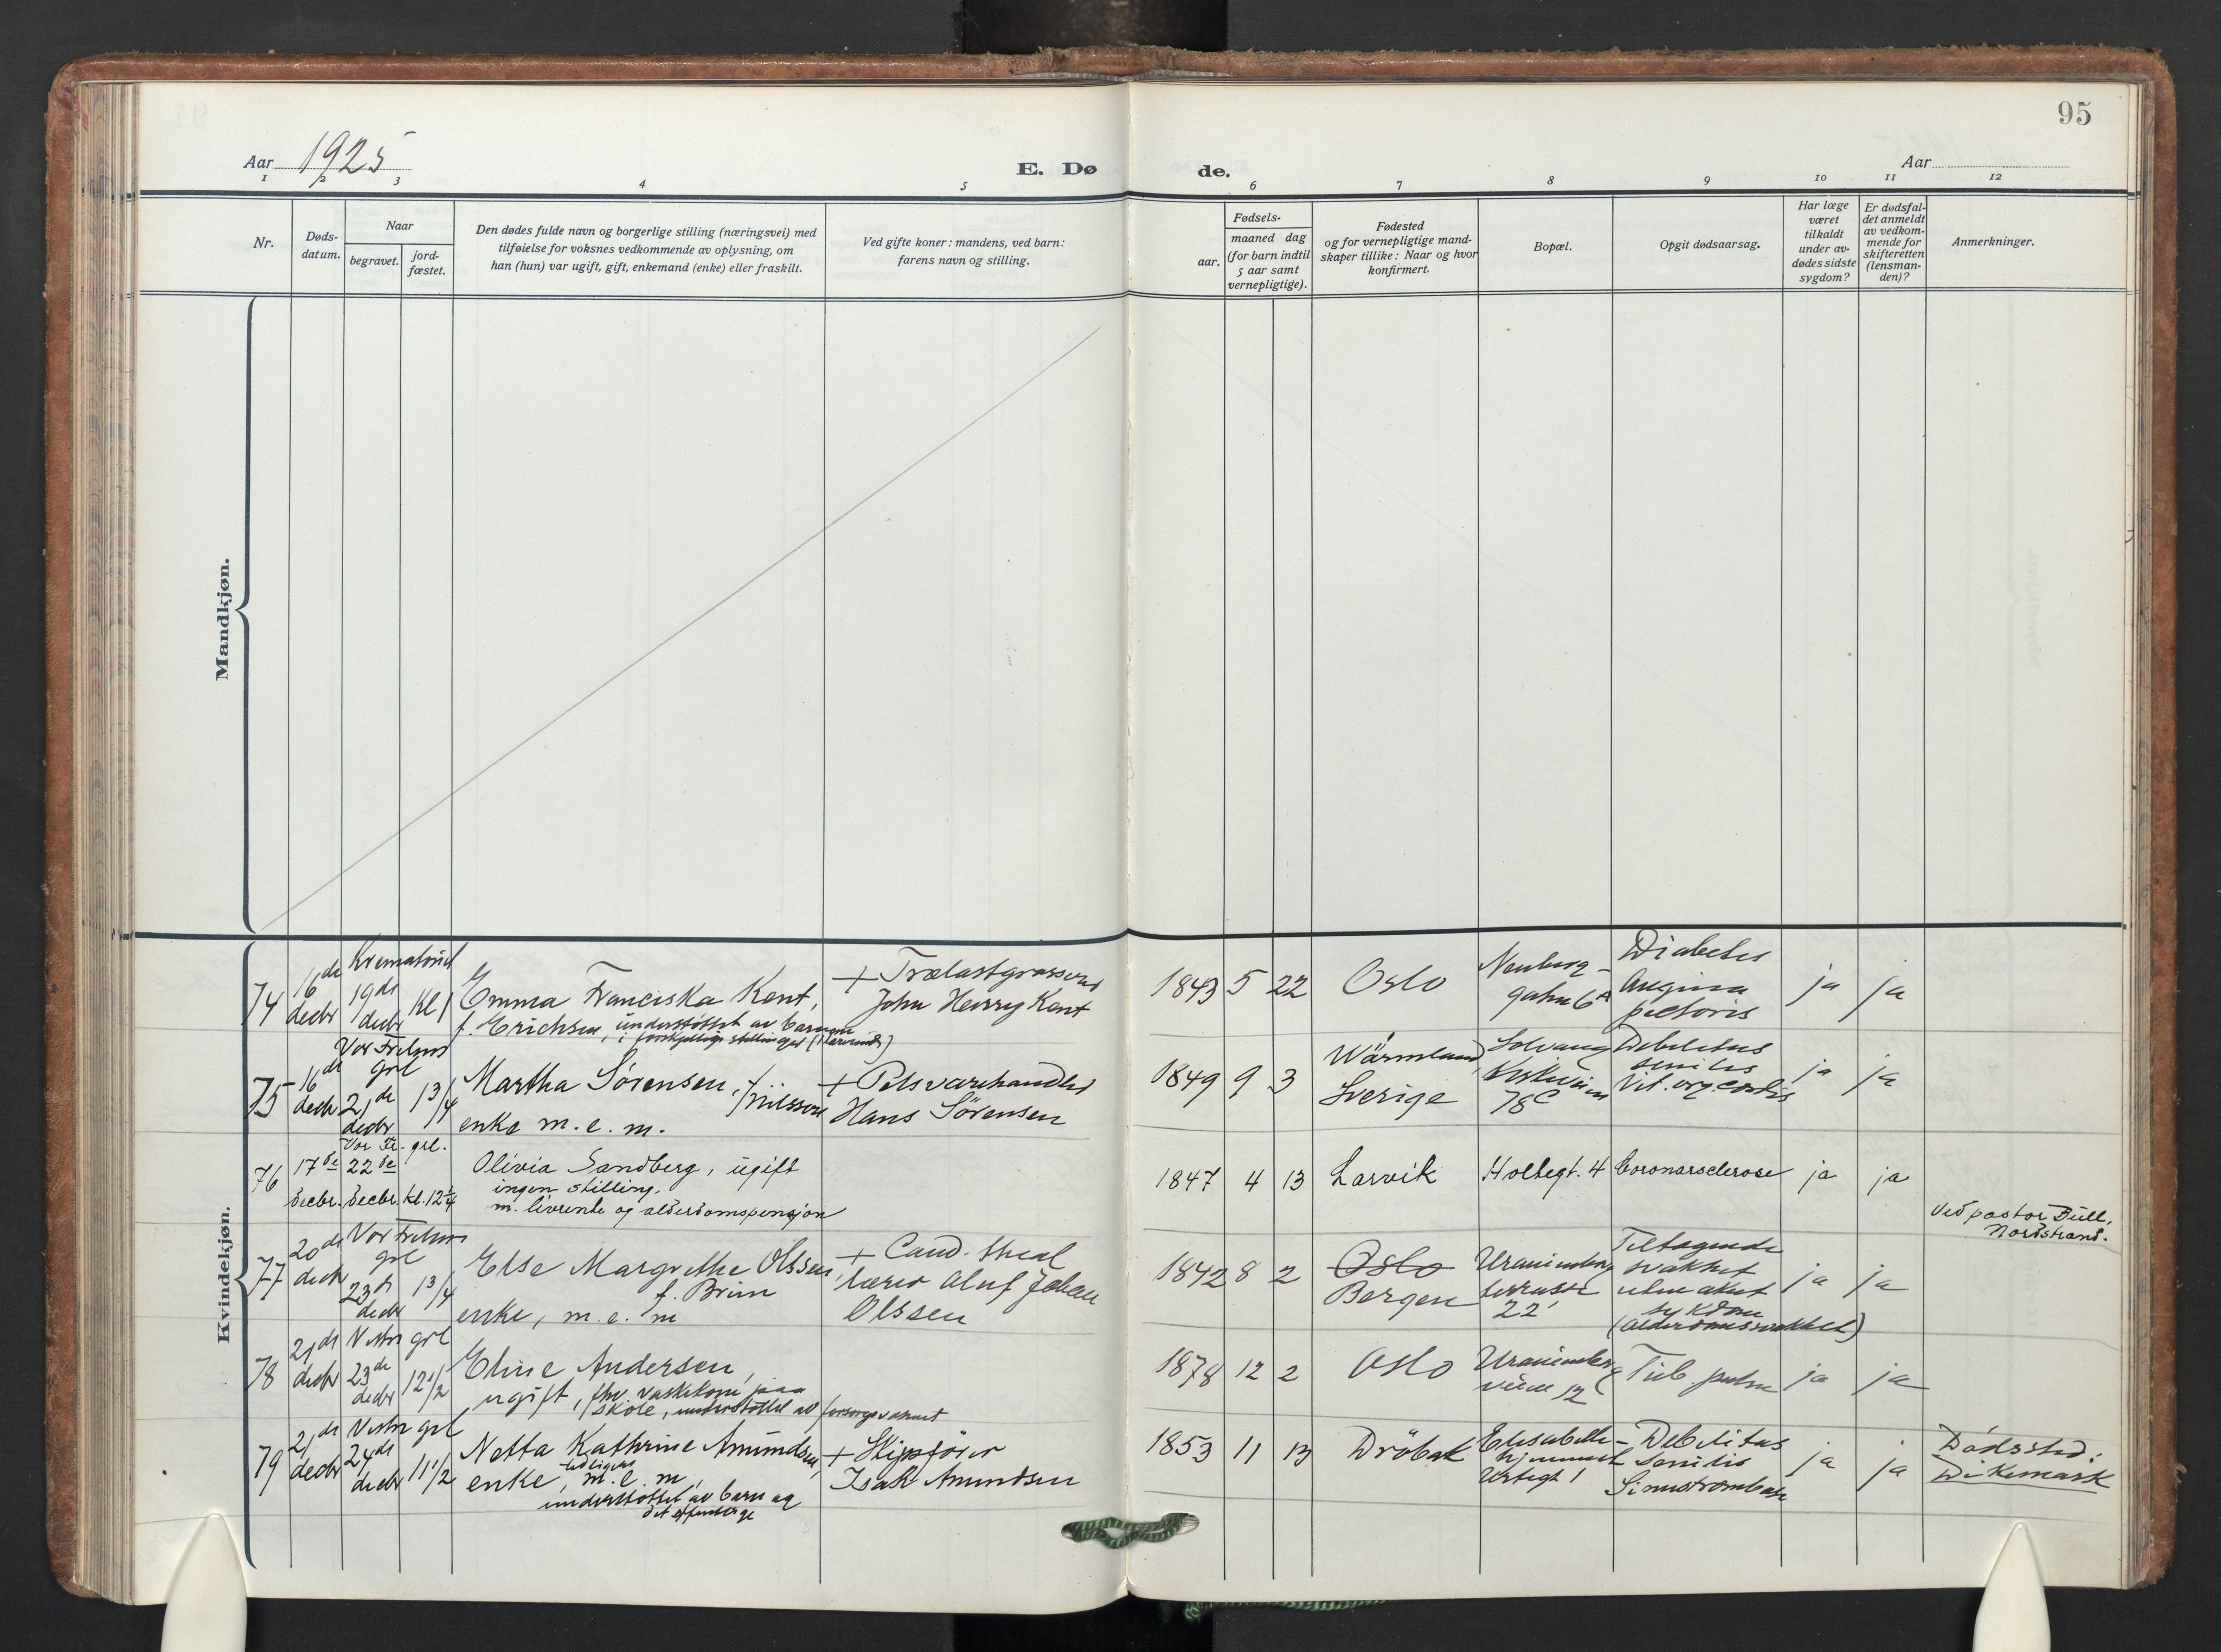 95
Aar 1925
E. Dø
de.
Aar
1 2 3 4 5 6 7 8 9 10 11 12
Nr.
Døds-
datum.
Naar
begravet.
jord-
fæstet.
Den dødes fulde navn og borgerlige stilling (næringsvei) med
tilføielse for voksnes vedkommende av oplysning, om
han (hun) var ugift, gift, enkemand (enke) eller fraskilt.
Ved gifte koner: mandens, ved barn:
farens navn og stilling.
Fødsels-
aar.
maaned dag
(for barn indtil
5 aar samt
vernepligtige).
Fødested
og for vernepligtige mand-
skaper tillike: Naar og hvor
konfirmert.
Bopæl.
Opgit dødsaarsag.
Har læge
været
tilkaldt
under av-
dødes sidste
sygdom?
Er dødsfal-
det anmeldt
av vedkom-
mende for
skifteretten
(lensman-
den)?
Anmerkninger.
Mandkjøn.
Kvindekjøn.
74
16de
decbr
Krematoriet
19de
decbr
kl 1
Emma Franciska Kent,
f. Erichsen, understøttet av barnene
i forskjellige stillinger
+ Trælastgrosserer
John Henry Kent
1843 5 22
Oslo
Neuberg-
gaten 6A
Diabetes
Angina
pectoris
ja
ja
75
16de
decbr
Vor Frelsers
grl
21de
decbr
1 3/4
Martha Sørensen, f. Nilsson
enke m. e. m.
+ Pelsvarehandler
Hans Sørensen
1849 9 3
Wärmland,
Sverige
Solvang
78C
Debilitas
senilis
Vit. org. cordis
ja
ja
76
17de
decbr.
Vor Fr. grl.
22de
decbr. kl. 12 1/4
Olivia Sandberg, ugift
ingen stilling.
m. livrente og alderdomspensjon
1847 4 13
Larvik
Holtegt. 4
Coronarsclerose
ja
ja
77
20de
decbr
Vor Frelsers
grl
23de
decbr
1 3/4
Else Margrethe Olssen,
f. Brun
enke, m. e. m
+ Cand. theol
lærer Oluf Johan
Olssen
1842 8 2
Oslo
Bergen
Uranienborg
terrasse
22
Tiltagende
svakhet
uten akut
sykdom
(alderdomssvakhet)
ja
ja
Ved pastor Bull,
Nordstrand.
78
21de
decbr
Vestre grl
23de
decbr
12 1/2
Eline Andersen,
ugift, fhv. vaskekone paa
skole, understøttet av forsorgsvæsnet
1878 12 2
Oslo
Uranienborg
veien 12
Tub. pulm
ja
ja
79
21de
decbr
Vestre grl
24de
decbr
11 1/2
Netta Kathrine Amundsen,
enke, tidligere m. e. m,
understøttet av barn og
det offentlige
+ Skipsfører
Isak Amundsen
1853 11 13
Drøbak
Elisabeth-
hjemmet
Urtegt 1
Debilitas
senilis
Sinustrombose
ja
ja
Dødssted:
Dikemark